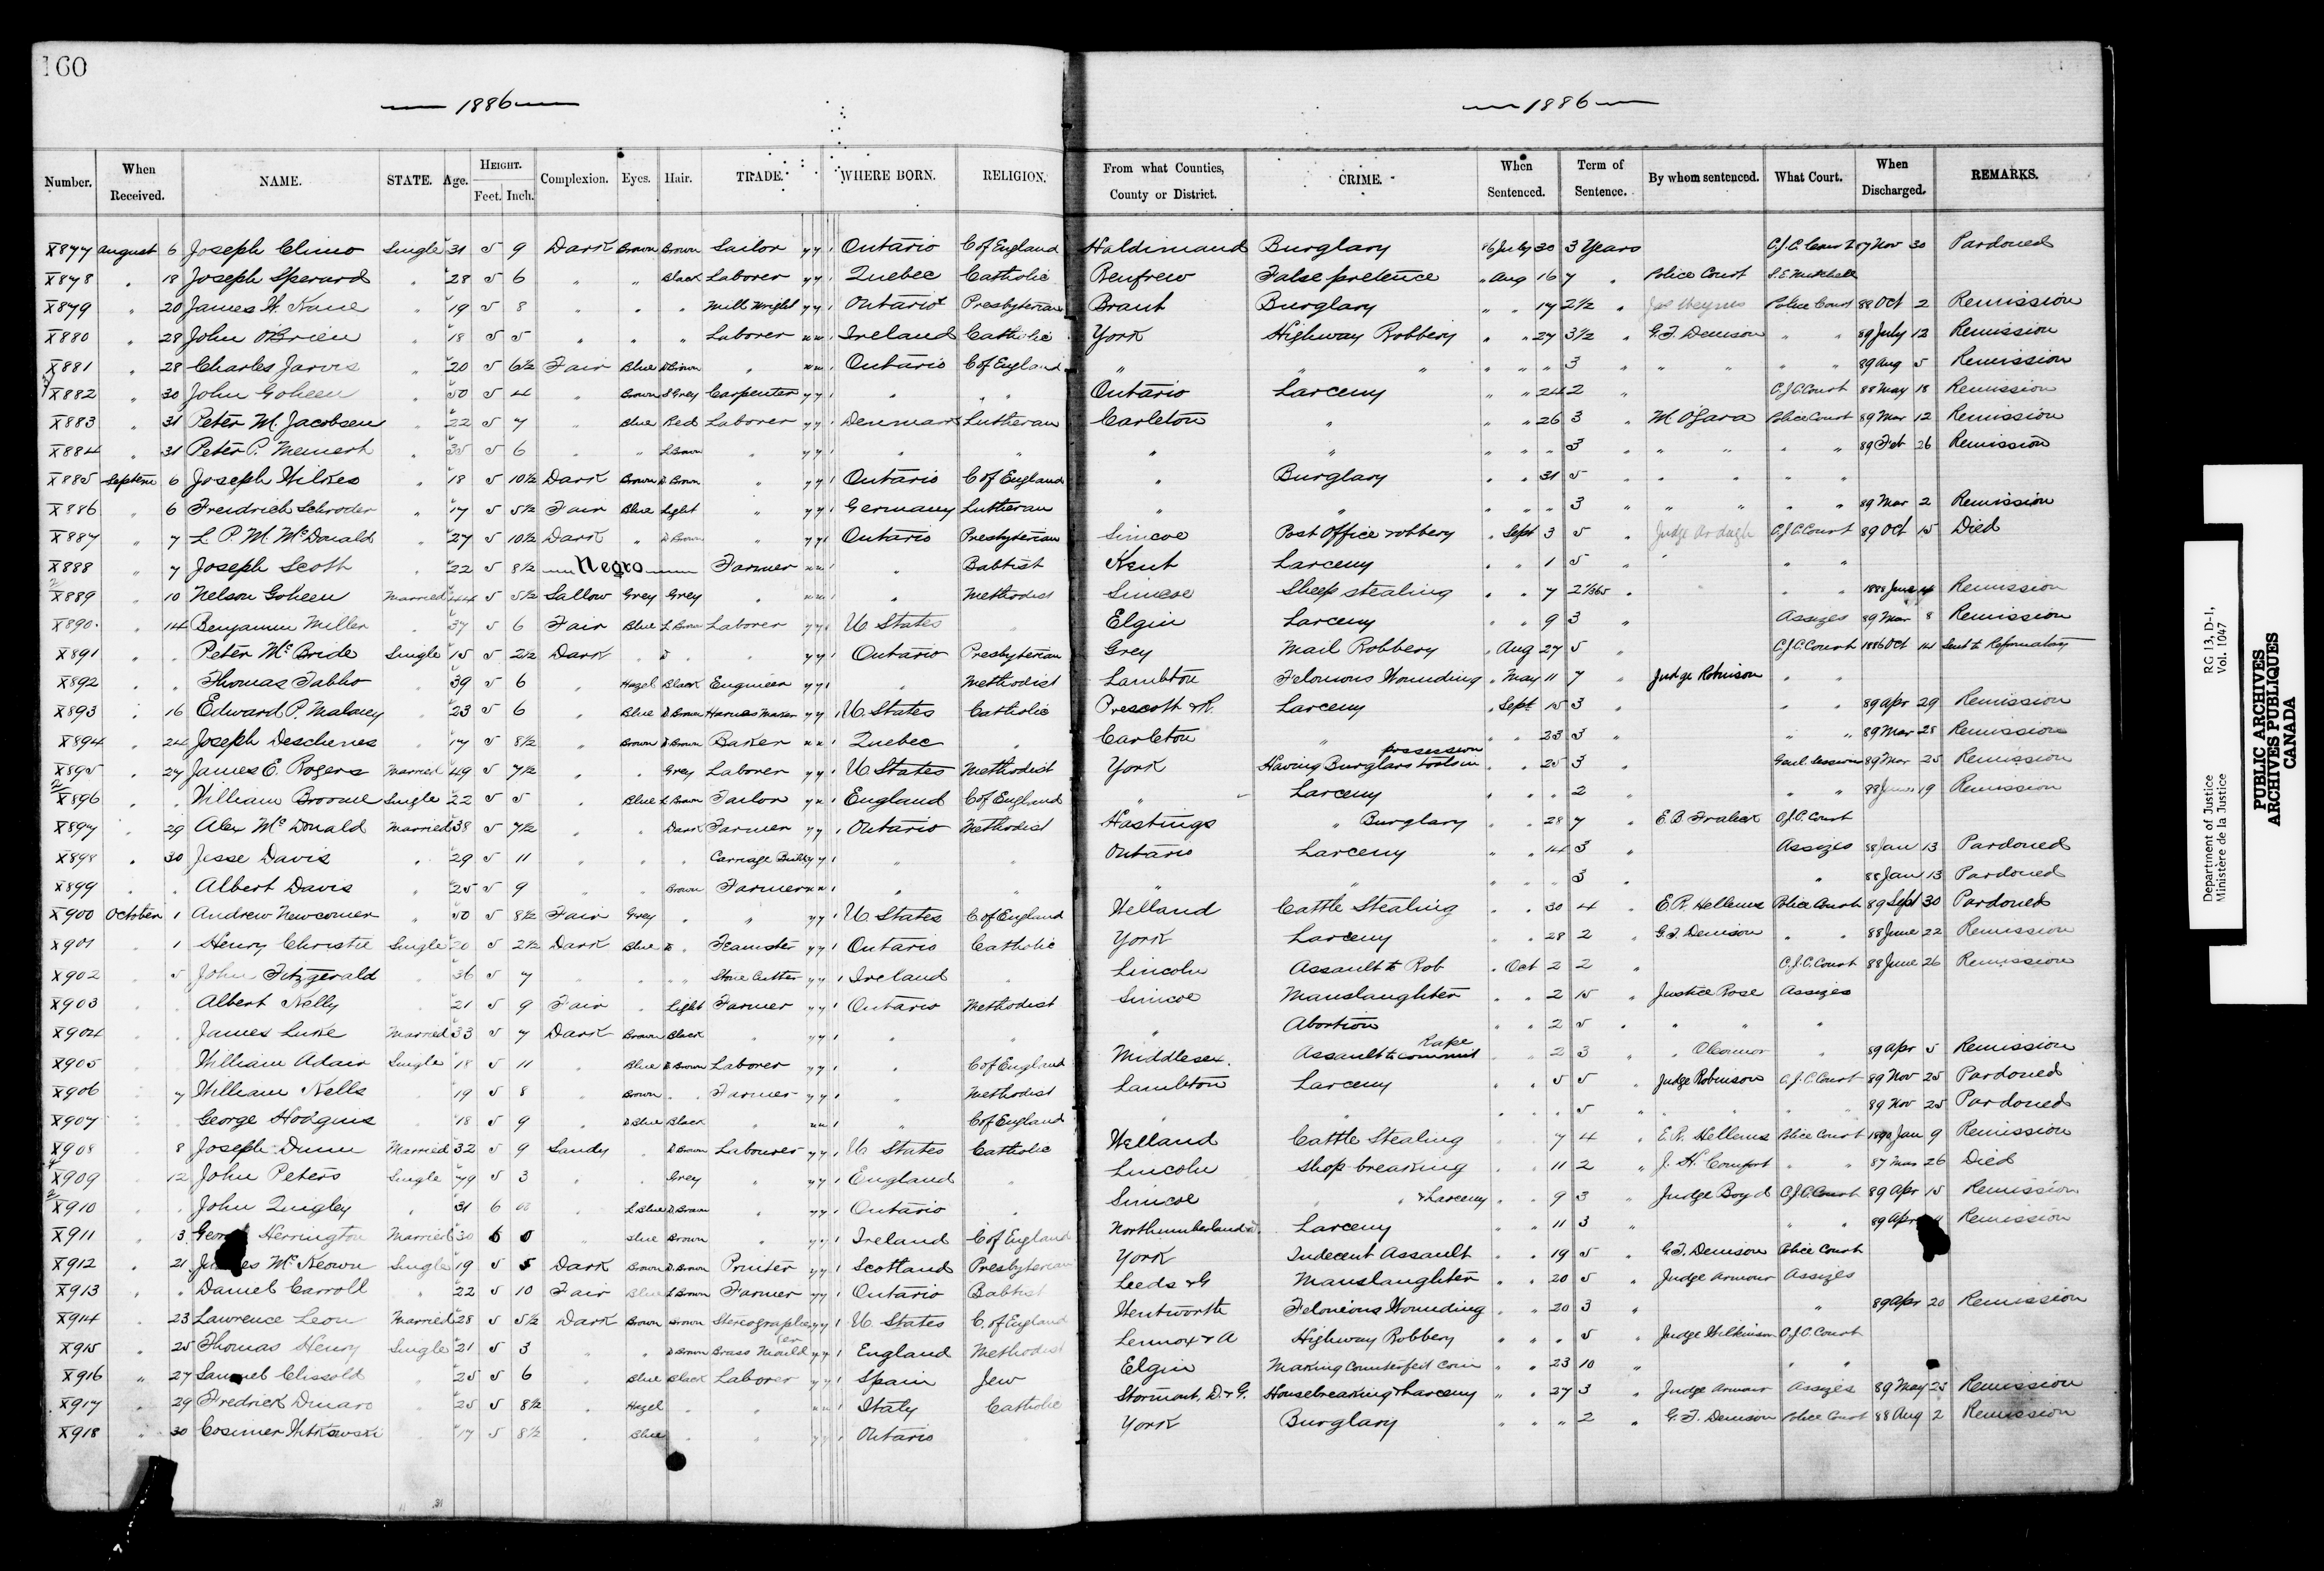 160
1886
1886
Number. When Received. NAME. STATE. Age. HEIGHT. Feet. Inch. Complexion. Eyes. Hair. TRADE. WHERE BORN. RELIGION. From what Counties, County or District. CRIME. When Sentenced. Term of Sentence. By whom sentenced. What Court. When Discharged. REMARKS.
X877 August 6 Joseph Climo Single 31 5 9 Dark Brown Brown Sailor y y 1 Ontario C of England Haldimand Burglary 86 July 30 3 Years C.J.C. Court 87 Nov 30 Pardoned
X878 " 18 Joseph Sperard " 28 5 6 " " Black Laborer y y 1 Quebec Catholic Renfrew False pretence " Aug 16 7 " Police Court
X879 " 20 James H. Kane " 19 5 8 " " " Mill Wright y y 1 Ontario Presbyterian Brant Burglary " " 17 2½ " Police Court 88 Oct 2 Remission
X880 " 28 John OBrien " 18 5 5 " " " Laborer n n 1 Ireland Catholic York Highway Robbery " " 27 3½ " G.T. Denison " " 89 July 12 Remission
X881 " 28 Charles Jarvis " 20 5 6½ Fair Blue D Brown " n n 1 Ontario C of England " " " " " " 3 " " " " " 89 Aug 5 Remission
X882 " 30 John Goheen " 50 5 4 " Brown D Grey Carpenter y y 1 " " Ontario Larceny " " 24 2 " C.J.C. Court 88 May 18 Remission
X883 " 31 Peter M. Jacobsen " 22 5 7 " Blue Red Laborer y y 1 Denmark Lutheran Carleton " " " 26 3 " M. O'Gara Police Court 89 Mar 12 Remission
X884 " 31 Peter P. " 35 5 6 " " L Brown " y y 1 " " " " " " " 3 " " " " " 89 Feb 26 Remission
X885 Septem 6 Joseph Wilkes " 18 5 10½ Dark Brown D Brown " y y 1 Ontario C of England " Burglary " " 31 5 " " " " "
X886 " 6 Freidrich Schroder " 17 5 5½ Fair Blue Light " y y 1 Germany Lutheran " " " " " 3 " " " " " 89 Mar 2 Remission
X887 " 7 L. P. M. McDonald " 27 5 10½ Dark " D Brown " y y 1 Ontario Presbyterian Simcoe Post Office robbery " Sept 3 5 " Judge Ardagh C.J.C. Court 89 Oct 15 Died
X888 " 7 Joseph Scott " 22 5 8½ Negro Farmer n n 1 " Babtist Kent Larceny " " 1 5 " " " "
X889 " 10 Nelson Goheen Married 44 5 5½ Sallow Grey Grey " n n 1 " Methodist Simcoe Sheep stealing " " 7 2 1/365 " " " 1888 June 4 Remission
X890 " 14 Benjamin Miller " 37 5 6 Fair Blue L Brown Laborer y y 1 U States " Elgin Larceny " " 9 3 " Assizes 89 Mar 8 Remission
X891 " " Peter McBride Single 15 5 2½ Dark " D " y y 1 Ontario Presbyterian Grey Mail Robbery " Aug 27 5 " C.J.C. Court 1886 Oct 14 Sent to Reformatory
X892 " " Thomas " 39 5 6 " Hazel Black Engineer y y 1 " Methodist Lambton Felonious Wounding " May 11 7 " Judge Robinson " "
X893 " 16 Edward P. Maloney " 23 5 6 " Blue D Brown Harness Maker y y 1 U. States Catholic Prescott & R. Larceny " Sept 15 3 " " " 89 Apr 29 Remission
X894 " 24 Joseph Deschenes " 17 5 8½ " Brown D Brown Baker n n 1 Quebec " Carleton " " " 23 3 " " " 89 Mar 25 Remission
X895 " 27 James E. Rogers Married 49 5 7½ " " Grey Laborer y y 1 U States Methodist York Having Burglars tools in possession " " 25 3 " Genl. Session 89 Mar 25 Remission
X896 " " William Broome Single 22 5 5 " Blue L Brown Tailor y n 1 England C of England " Larceny " " " 2 " " " 88 19 Remission
X897 " 29 Alex McDonald Married 38 5 7½ " " Dark Farmer y y 1 Ontario Methodist Hastings " Burglary " " 28 7 " E.B. Fraleck C.J.C. Court
X898 " 30 Jesse Davis " 29 5 11 " " " Carriage Builder y y 1 " " Ontario Larceny " " 14 3 " Assizes 88 Jan 13 Pardoned
X899 " " Albert Davis " 25 5 9 " " Brown Farmer n n 1 " " " " " " " 3 " " 88 Jan 13 Pardoned
X900 October 1 Andrew Newcomer " 50 5 8½ Fair Grey " " y y 1 U States C of England Welland Cattle Stealing " " 30 4 " E.R. Hellems Police Court 89 Sept 30 Pardoned
X901 " 1 Henry Christie Single 20 5 2½ Dark Blue D " Teamster y y 1 Ontario Catholic York Larceny " " 28 2 " G.T. Denison " " 88 June 22 Remission
X902 " 5 John Fitzgerald " 36 5 7 " " " " Stone Cutter y y 1 Ireland " Lincoln Assault to Rob " Oct 2 2 " C.J.C. Court 88 June 26 Remission
X903 " " Albert Nelly " 21 5 9 Fair " Light Farmer y y 1 Ontario Methodist Simcoe Manslaughter " " 2 15 " Justice Rose Assizes
X904 " " James Luke Married 33 5 7 Dark Brown Black " y y 1 " " " Abortion " " 2 5 " " " "
X905 " William Adair Single 18 5 11 " Blue D Brown Laborer y y 1 " C of England Middlesex Assault to commit Rape " " 2 3 " " OConnor " 89 Apr 5 Remission
X906 " 7 William Nells " 19 5 8 " Brown " " Farmer y y 1 " Methodist Lambton Larceny " " 5 5 " Judge Robinson C.J.C. Court 89 Nov 25 Pardoned
X907 " George Hodgins " 18 5 9 " D Blue Black " n n 1 " C of England " " " " " 5 " " " " 89 Nov 25 Pardoned
X908 8 Joseph Dunn Married 32 5 9 Sandy " D Brown Labourer y y 1 U States Catholic Welland Cattle Stealing " 7 4 " E.R. Hellems Police Court 1890 Jan 9 Remission
X909 12 John Peters Single 79 5 3 " " Grey " y y 1 England " Lincoln Shop breaking " " 11 2 " J. H. Comfort " " 87 Mar 26 Died
X910 " John Quigley " 31 6 00 " L Blue D Brown " y y 1 Ontario " Simcoe " " & Larceny " " 9 3 " Judge Boyd C.J.C. Court 89 Apr 15 Remission
X911 " 13 Herrington Married 30 6 0 " Blue Brown " y y 1 Ireland C of England Northumberland & D. Larceny " " 11 3 " " " 89 Apr Remission
X912 " 21 McKeown Single 19 5 5 Dark Brown D Brown Printer y y 1 Scotland Presbyterian York Indecent Assault " " 19 5 " G.T. Denison Police Court
X913 " " Daniel Carroll " 22 5 10 Fair Blue L Brown Farmer y y 1 Ontario Babtist Leeds & G Manslaughter " " 20 5 " Judge Armour Assizes
X914 23 Lawrence Leon Married 28 5 5½ Dark Brown Brown Stereographer y y 1 U. States C. of England Wentworth Felonious Wounding " " 20 3 " " 89 Apr 20 Remission
X915 " 25 Thomas Henry Single 21 5 3 " " D Brown Brass Moulder y y 1 England Methodist Lennox & A Highway Robbery " " " 5 " Judge Wilkinson C.J.C. Court
X916 " 27 Samuel Clissold " 25 5 6 " Blue Black Laborer y y 1 Spain Jew Elgin Making Counterfeit Coin " " 23 10 " " "
X917 " 29 Fredrick " 25 5 8½ " Hazel " " n n 1 Italy Catholic Stormont, D & G. Housebreaking & Larceny " " 27 3 " Judge Armour Assizes 89 May 25 Remission
X918 " 30 Cosimer " 17 5 8½ " Blue " " y y 1 Ontario " York Burglary " " " 2 " G.T. Denison Police Court 88 Aug 2 Remission
Department of Justice RG 13, D-1,
Ministère de la Justice Vol. 1047
PUBLIC ARCHIVES
ARCHIVES PUBLIQUES
CANADA